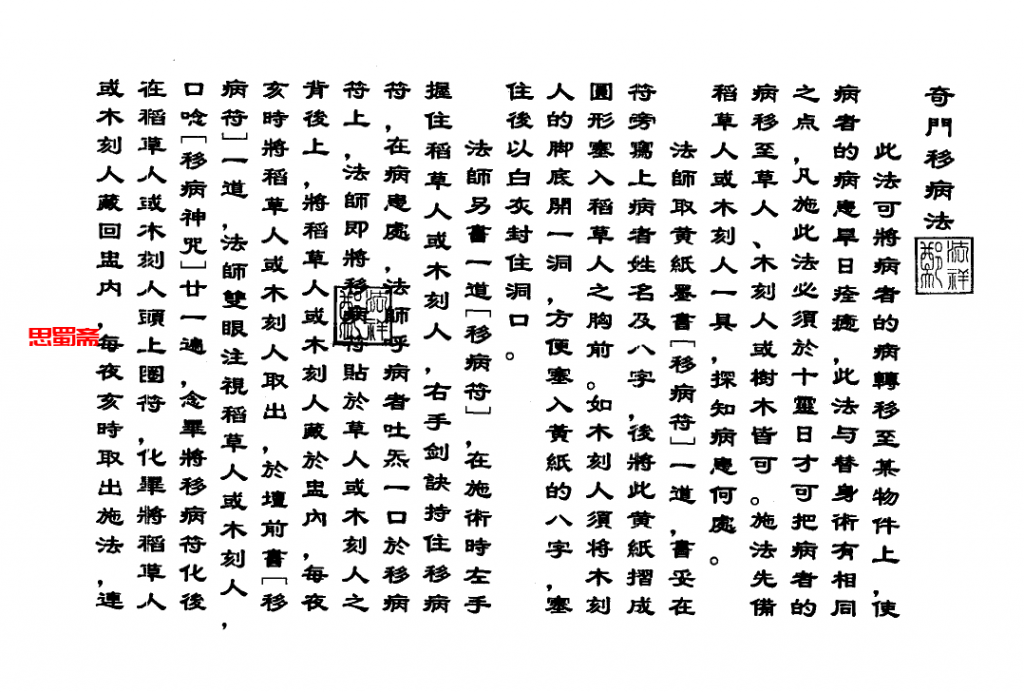 奇門移病法
此法可將病者的病轉移至某物件上，使
病者的病患早日痊癒，此法与替身術有相同
之点，凡施此法必須於十靈日才可把病者的
病移至草人、木刻人或樹木皆可。施法先備
稻草人或木刻人一具，探知病患何處。
法師取黄紙墨書［移病符］一道，書妥在
符旁寫上病者姓名及八字，後將此黄紙摺成
圓形塞入稻草人之胸前。如木刻人須将木刻
人的脚底開一洞，方便塞入黄紙的八字，塞
住後以白灰封住洞口。
法師另書一道［移病符］，在施術時左手
握住稻草人或木刻人，右手剑訣持住移病
符，在病患處，法師乎病者吐炁一口於移病
符上，法師即將移病符貼於草人或木刻人之
背後上，將稻草人或木刻人藏於盅內，每夜
亥時將稻草人或木刻人取出，於壇前書［移
病符］一道，法師雙眼注視稻草人或木刻人，
口唸［移病神咒］廿一遍，念畢將移病符化後
在稻草人或木刻人頭上圈符，化畢將稻草人
或木刻人藏回盅內，每夜亥時取出施法，連
思蜀斋